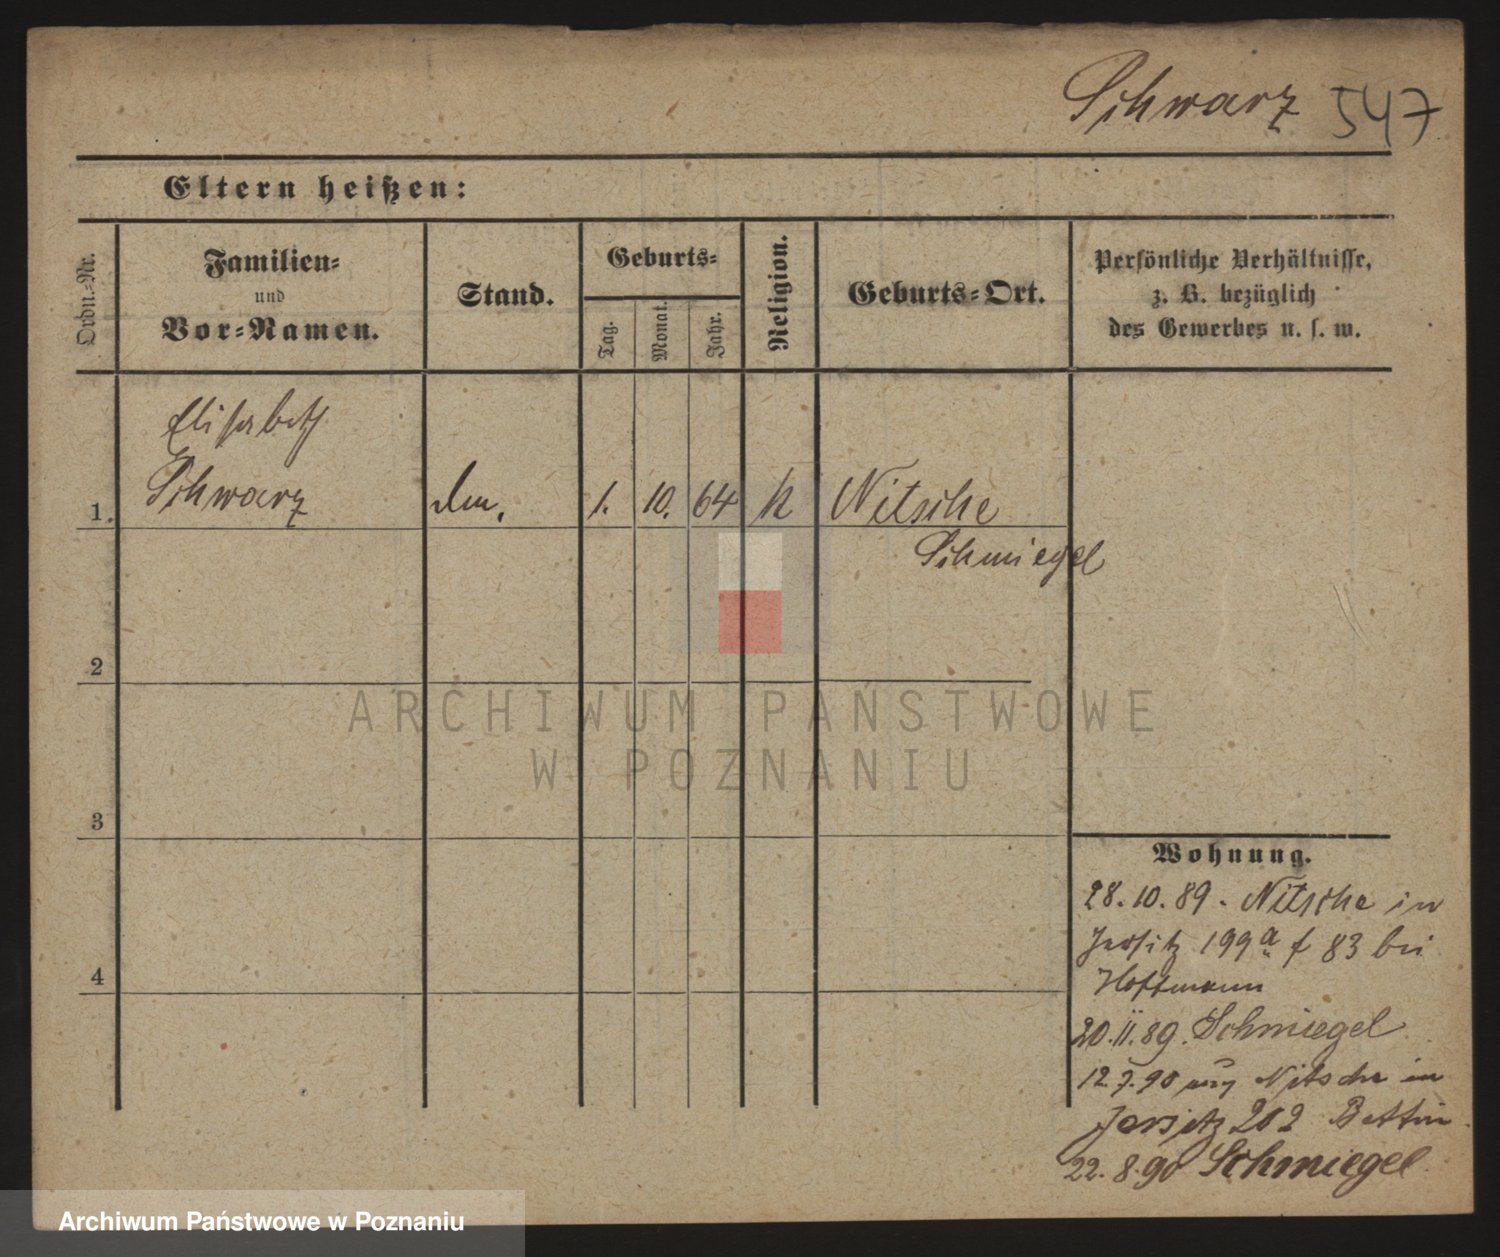 Schwarz 547
Eltern heißen:
Ordn.-Nr.
Familien-
und
Vor-Namen.
Stand.
Geburts-
Tag.
Monat.
Jahr.
Religion.
Geburts-Ort.
Persönliche Verhältnisse,
z. B. bezüglich
des Gewerbes u. s. w.
Elisabeth
1. Schwarz 1. 10. 64 k Nitsche
Schmiegel
2
3
4
Wohnung.
28.10.89. Nitsche in
Jersitz 199a f 83 bei
Hoffmann
20.11.89. Schmiegel
12.7.90 Nitsche in
Jersitz 202
22.8.90 Schmiegel
ARCHIWUM PAŃSTWOWE
W POZNANIU
Archiwum Państwowe w Poznaniu